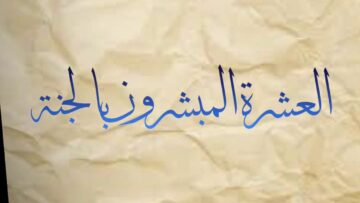 العشرة المبشرون بالجنة